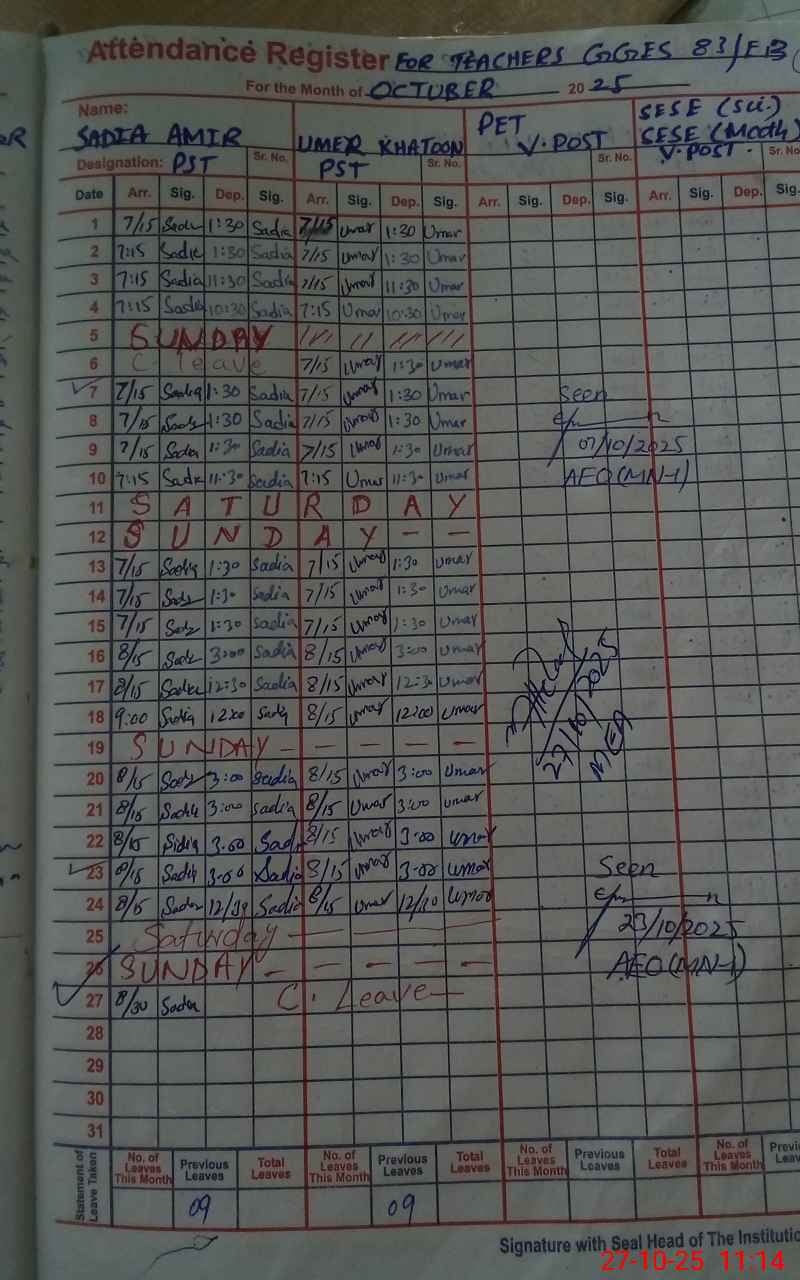 Attendance Register FOR TEACHERS GGES 83/EB
For the Month of OCTUBER 20 25
Name: SADIA AMIR UMER KHATOON PET V.POST SESE (Sci.) SESE (Math) V.POST.
Designation: PST Sr. No. PST Sr. No. Sr. No. Sr. No.
Date Arr. Sig. Dep. Sig. Arr. Sig. Dep. Sig. Arr. Sig. Dep. Sig. Arr. Sig. Dep. Sig.
1 7/15 Sadia 1:30 Sadia 7/15 Umar 1:30 Umar
2 7:15 Sadia 1:30 Sadia 7/15 Umar 1:30 Umar
3 7:15 Sadia 11:30 Sadia 7/15 Umar 11:30 Umar
4 7:15 Sadia 10:30 Sadia 7:15 Umar 10:30 Umar
5 SUNDAY
6 C. leave 7/15 Umar 1:30 Umar
7 7/15 Sadia 1:30 Sadia 7/15 Umar 1:30 Umar Seen
8 7/15 Sadia 1:30 Sadia 7/15 Umar 1:30 Umar
9 7/15 Sadia 1:30 Sadia 7/15 Umar 1:30 Umar 07/10/2025
10 7:15 Sadia 11:30 Sadia 7:15 Umar 11:30 Umar AEO(MN-1)
11 SATURDAY
12 SUNDAY - -
13 7/15 Sadia 1:30 Sadia 7/15 Umar 1:30 Umar
14 7/15 Sadia 1:30 Sadia 7/15 Umar 1:30 Umar
15 7/15 Sadia 1:30 Sadia 7/15 Umar 1:30 Umar
16 8/15 Sadia 3:00 Sadia 8/15 Umar 3:00 Umar
17 8/15 Sadia 12:30 Sadia 8/15 Umar 12:30 Umar
18 9:00 Sadia 12:00 Sadia 8/15 Umar 12:00 Umar
23/10/2025
MEA
19 SUNDAY - - - - -
20 8/15 Sadia 3:00 Sadia 8/15 Umar 3:00 Umar
21 8/15 Sadia 3:00 Sadia 8/15 Umar 3:00 Umar
22 8/15 Sidia 3.00 Sadia 8/15 Umar 3.00 Umar
23 8/15 Sadia 3.00 Sadia 8/15 Umar 3.00 Umar Seen
24 8/15 Sadia 12/30 Sadia 8/15 Umar 12/30 Umar
25 Saturday 23/10/2025
26 SUNDAY - - - - - AEO(MN-1)
27 8/30 Sadia C. Leave
28
29
30
31
Statement of Leave Taken No. of Leaves This Month Previous Leaves Total Leaves No. of Leaves This Month Previous Leaves Total Leaves No. of Leaves This Month Previous Leaves Total Leaves No. of Leaves This Month
09 09
Signature with Seal Head of The
27-10-25 11:14